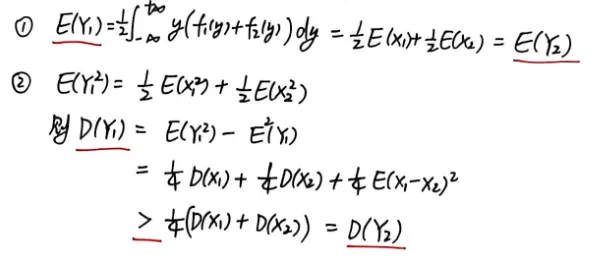 ① E(Y₁)=½∫₋∞⁺∞ y(f₁(y)+f₂(y))dy = ½E(X₁)+½E(X₂) = E(Y₂)
② E(Y₁²)= ½E(X₁²)+½E(X₂²)
则 D(Y₁) = E(Y₁²) - E²(Y₁)
= ¼D(X₁)+¼D(X₂)+¼E(X₁-X₂)²
> ¼(D(X₁)+D(X₂)) = D(Y₂)